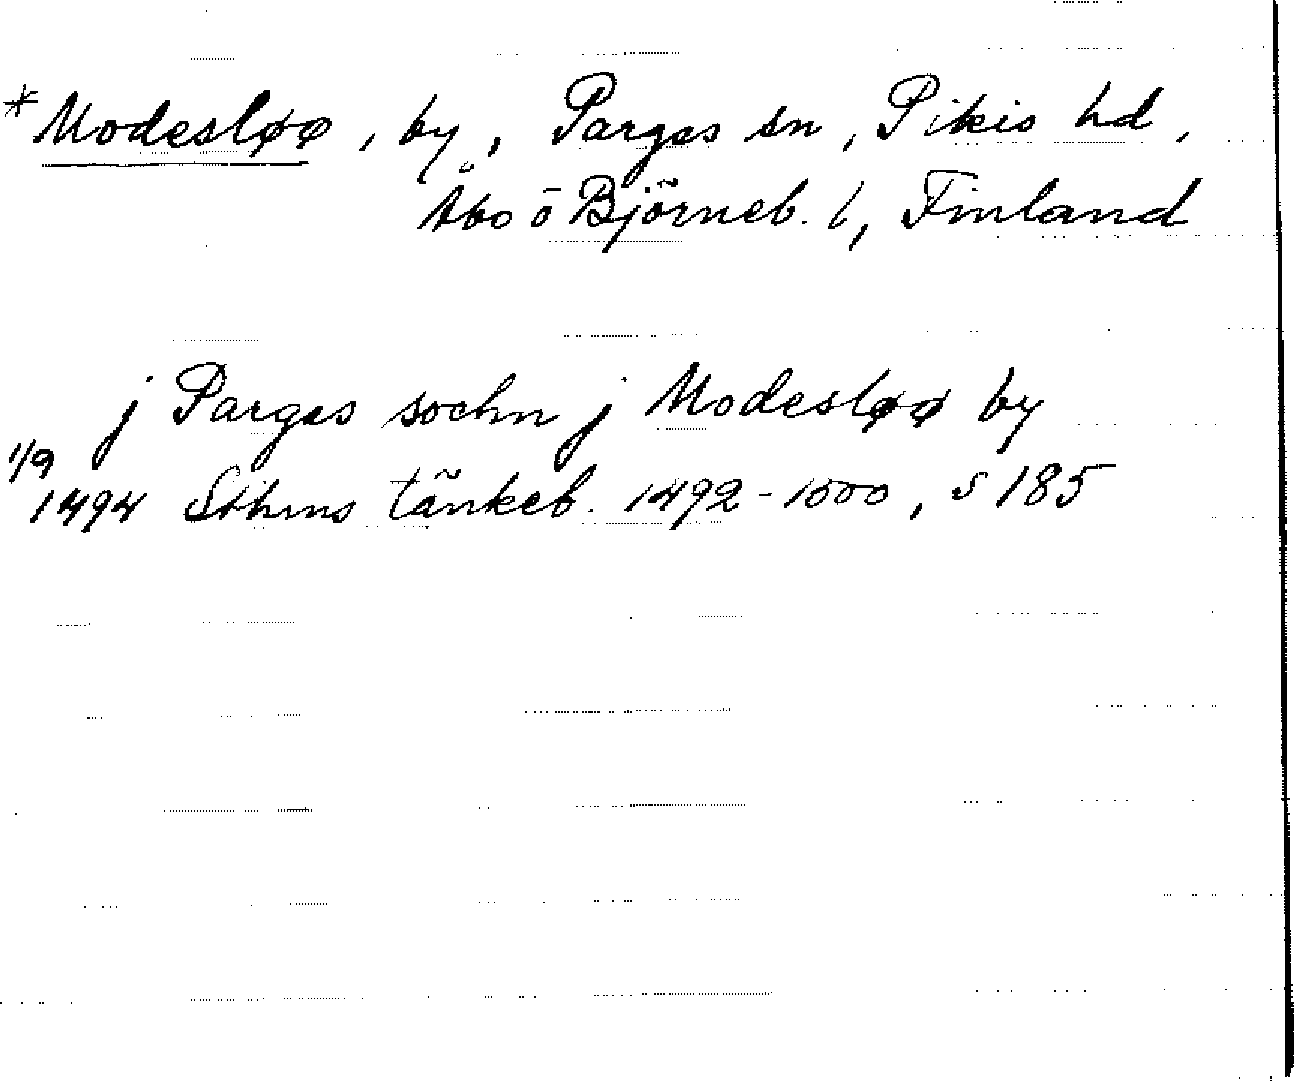 *Modesløø, by, Pargas sn, Pikis hd,
Åbo o Björneb. l, Finland
j Pargas sochn j Modesløø by
1/9
1494 Sthms tänkeb. 1492-1500, s 185